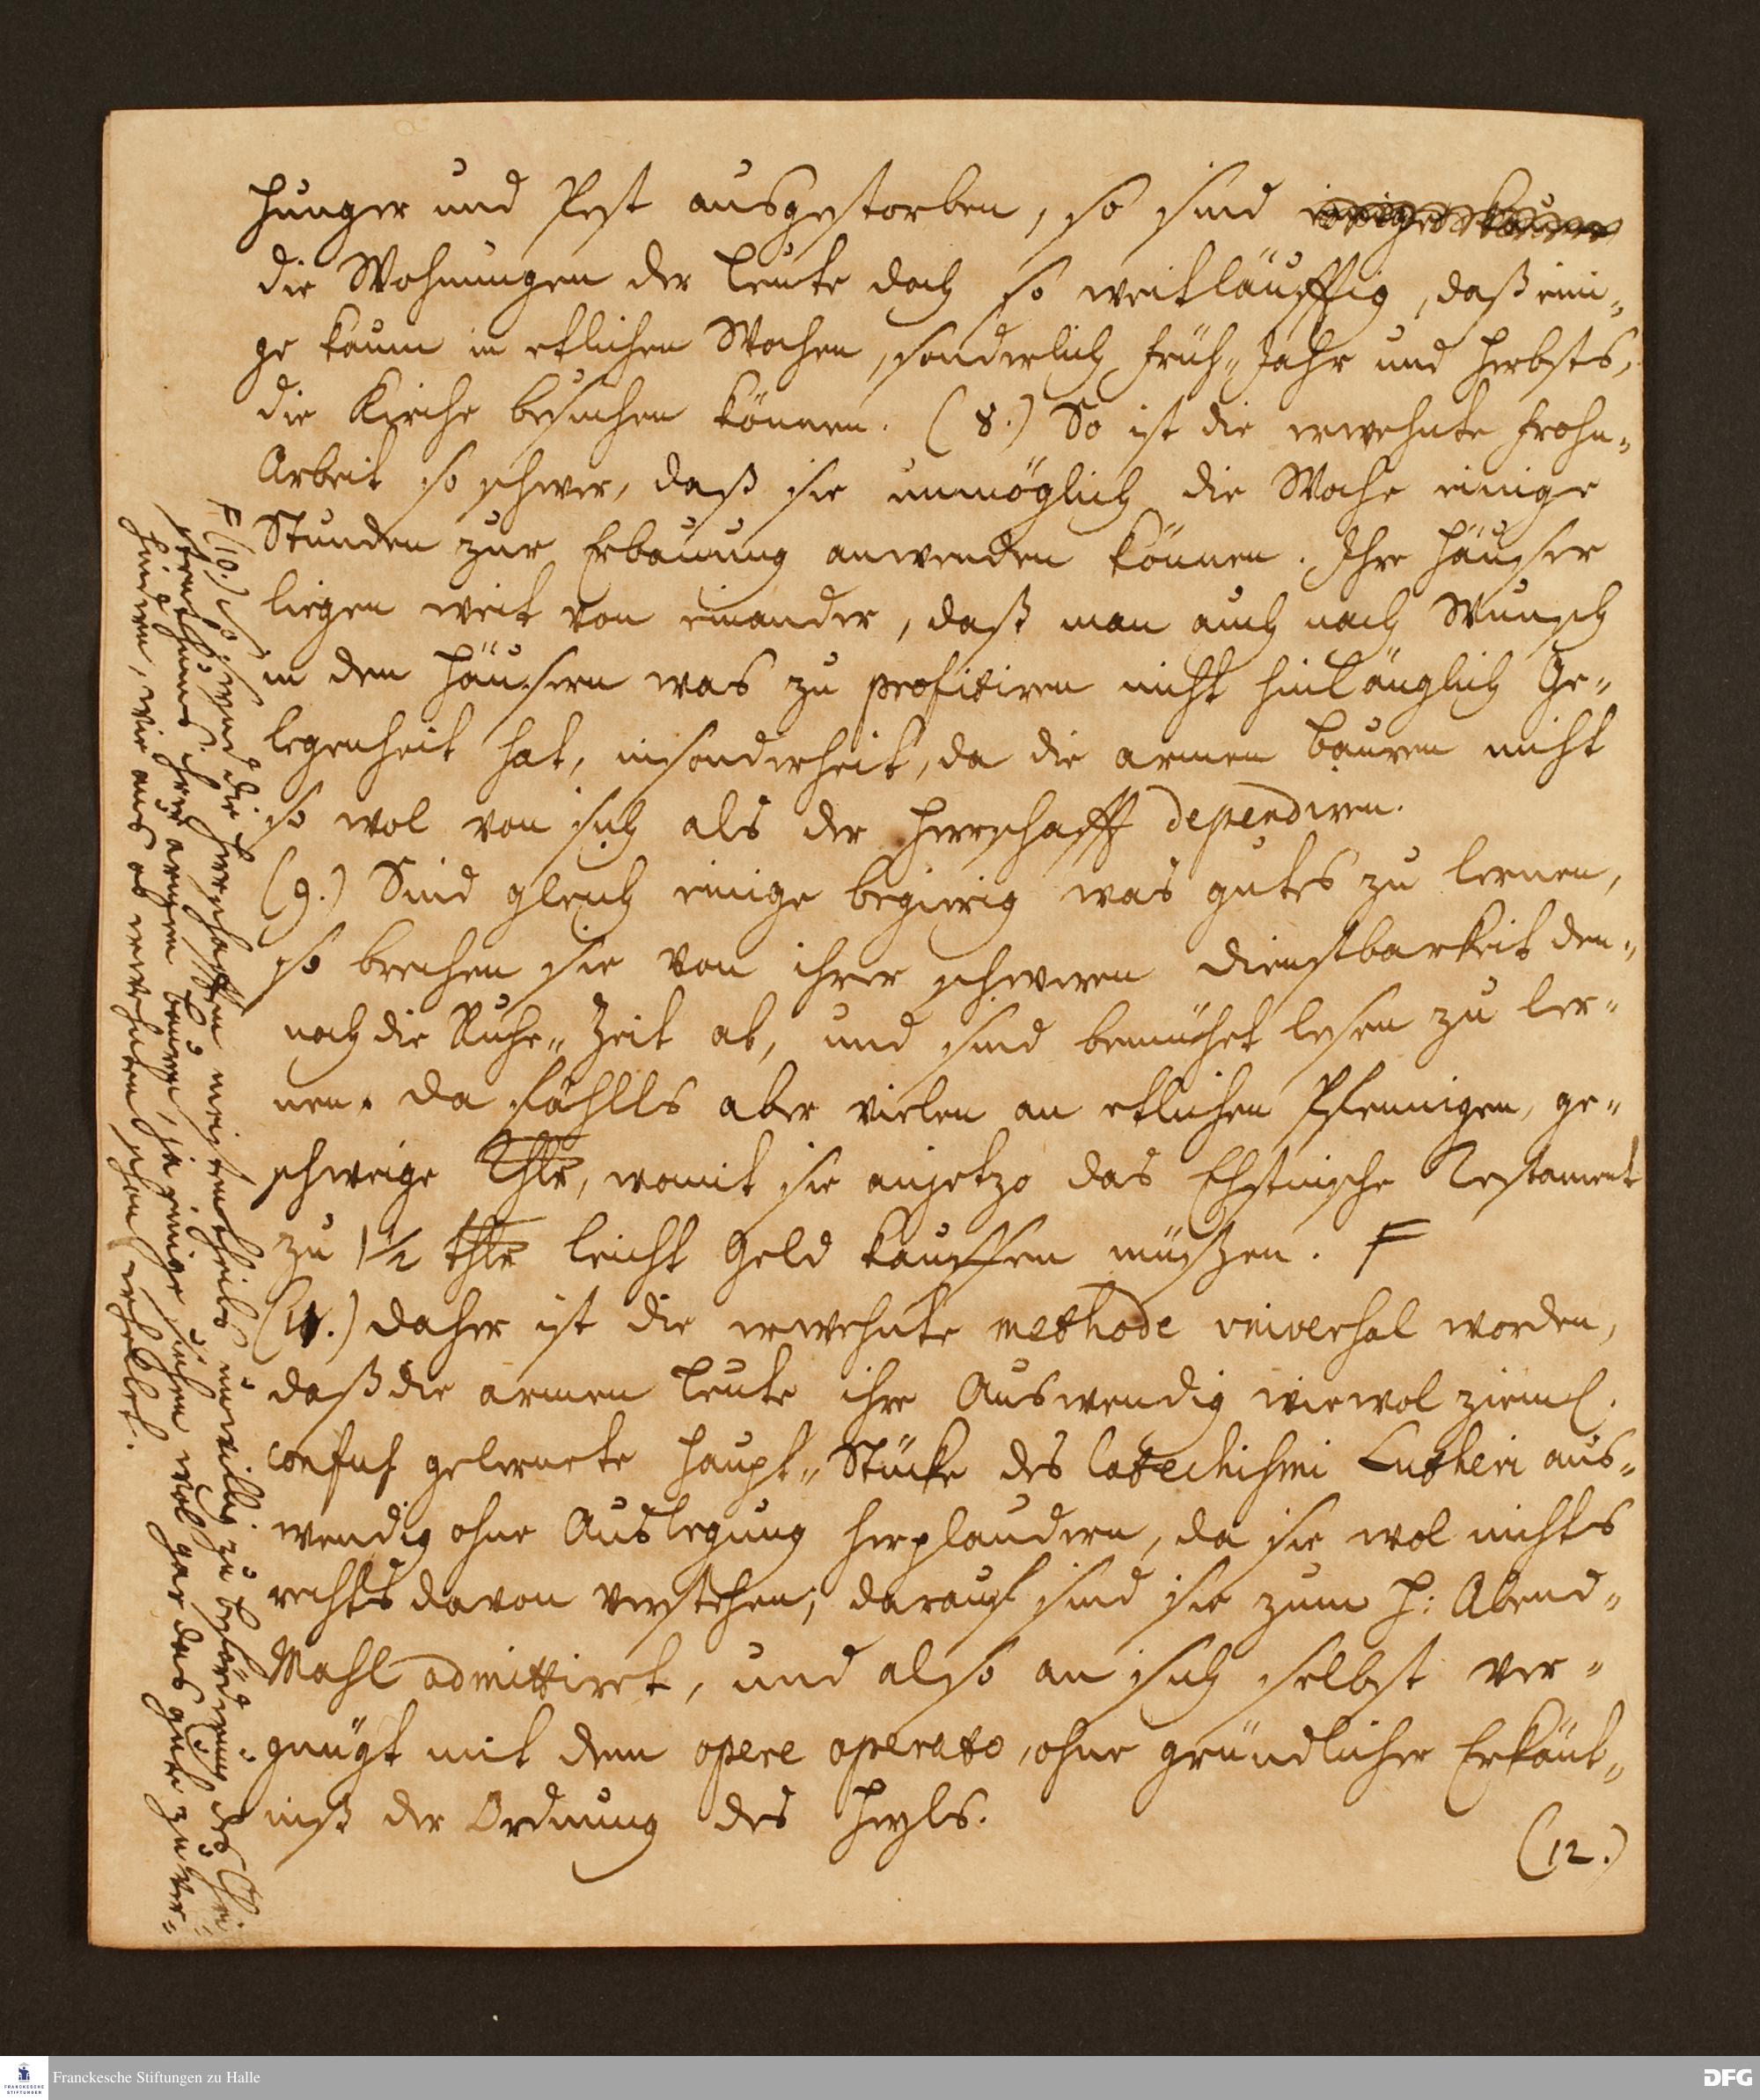 Hunger und Pest ausgestorben, so sind einige kaum
die Wohnungen der Leute doch so weitläufftig, daß eini-
ge kaum in etlichen Wochen, sonderlich Früh-Jahr und Herbsts,
die Kirche besuchen können. (8.) So ist die erwehnte Frohn-
Arbeit so schwer, daß sie unmöglich die Woche einige
Stunden zur Erbauung anwenden können. Ihre Häuser
liegen weit von einander, daß man auch nach Wunsch
in den Häusern was zu profitiren nicht hinlänglich Ge-
legenheit hat, insonderheit, da die armen Bauren nicht
so wol von sich als der Herrschafft dependiren.
(9.) Sind gleich einige begierig was gutes zu lernen,
so brechen sie von ihrer schweren Dienstbarkeit den-
noch die Ruhe-Zeit ab, und sind bemühet lesen zu ler-
nen. Da fählts aber vielen an etlichen Pfennigen, ge-
schweige Thlr, womit sie anjetzo das Ehstnische Testament
zu 1½ thlr leicht Geld kauffen müssen. F
(11.) Daher ist die erwehnte methode universal worden,
daß die armen Leute ihre Auswendig wiewol zieml.
confus gelernete Haupt-Stücke des Catechismi Lutheri aus-
wendig ohne Auslegung herplaudern, da sie wol nichts
rechts davon verstehen; darauf sind sie zum H: Abend-
Mahl admittiret, und also an sich selbst ver-
gnügt mit dem opere operato, ohne gründlicher Erkänt-
niß der Ordnung des Heyls.
(12.)
F (10.) So sind die Herrschafften meistentheils unwillig zu Beförderung des Chri-
stenthums ihrer armen Bauren, ja einige suchen wol gar das gute zu ver-
hindern, wie aus ob erwehnten schon erhellet.
Franckesche Stiftungen zu Halle
FRANCKESCHE STIFTUNGEN
DFG